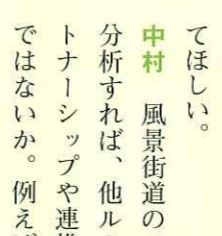 てほしい。
中村　風景街道の
分析すれば、他ル
トナーシップや連携
ではないか。例えば